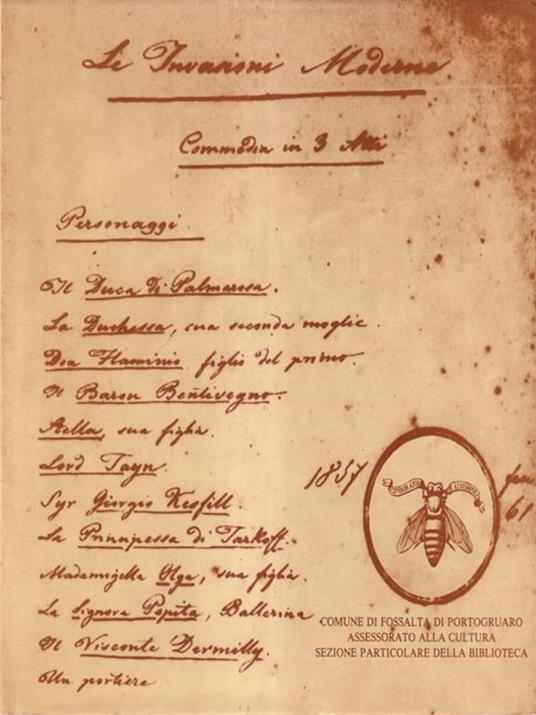 Le Invasioni Moderne
Commedia in 3 Atti
Personaggi.
Il Duca di Palmarosa.
La Duchessa, sua seconda moglie.
Don Flaminio figlio del primo.
Il Baron Bentivegno.
Stella, sua figlia.
Lord Tayn.
Syr Giorgio Kesfill.
La Principessa di Tarkoff.
Madamigella Olga, sua figlia.
La Signora Pepita, Ballerina
Il Visconte Dermilly.
Un portiere
1857
61
COMUNE DI FOSSALTA DI PORTOGRUARO
ASSESSORATO ALLA CULTURA
SEZIONE PARTICOLARE DELLA BIBLIOTECA